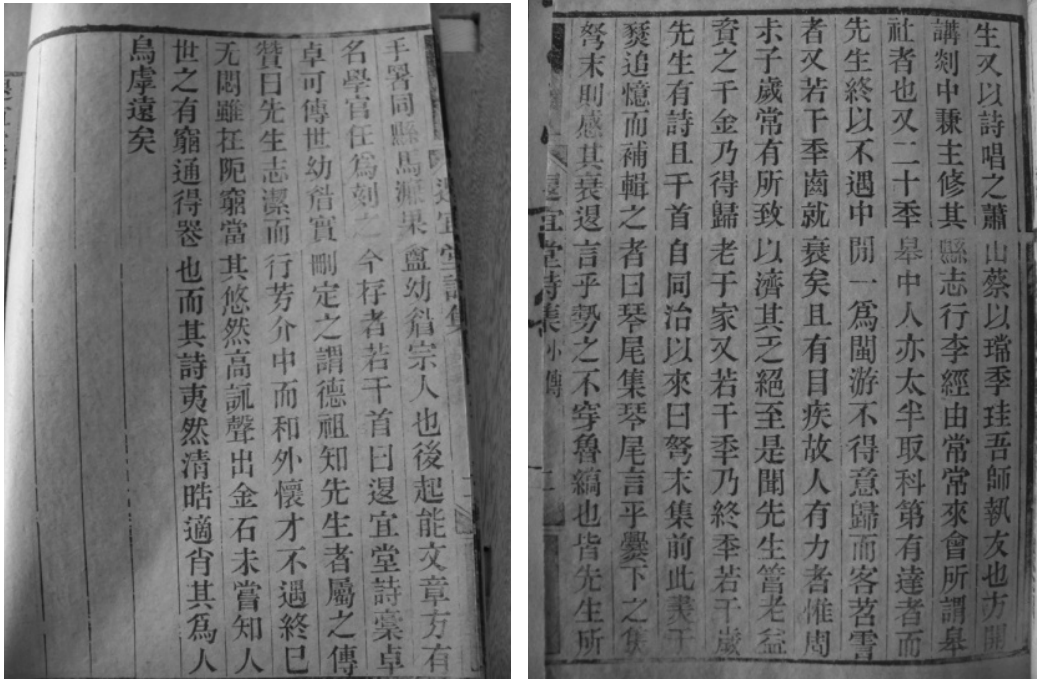 生又以詩唱之蕭山蔡以瑺季珪吾師執友也方開
講剡中兼主修其縣志行李經由常常來會所謂皋
社者也又二十季皋中人亦太半取科第有達者而
先生終以不遇中閒一爲閩游不得意歸而客苕霅
者又若干季齒就衰矣且有目疾故人有力者惟周
尗子歲常有所致以濟其乏絕至是聞先生老益
資之千金乃得歸老于家又若干季乃終秊若干歲
先生有詩且千首自同治以來曰弩末集前此于
燹追憶而補輯之者曰琴尾集琴尾言乎爨下之焦
弩末則感其衰退言乎勢之不穿魯縞也皆先生所
退宜堂詩集 小傳 二
退宜堂詩集 二
手署同縣馬源果盦幼眉宗人也後起能文章方有
名學官任爲刻之今存者若干首曰退宜堂詩稾卓
卓可傳世幼眉實刪定之謂德祖知先生者屬之傳
贊曰先生志潔而行芳介中而和外懷才不遇終已
无悶雖在阨窮當其悠然高詠聲出金石未嘗知人
世之有窮通得喪也而其詩夷然清晧適肖其爲人
烏虖遠矣